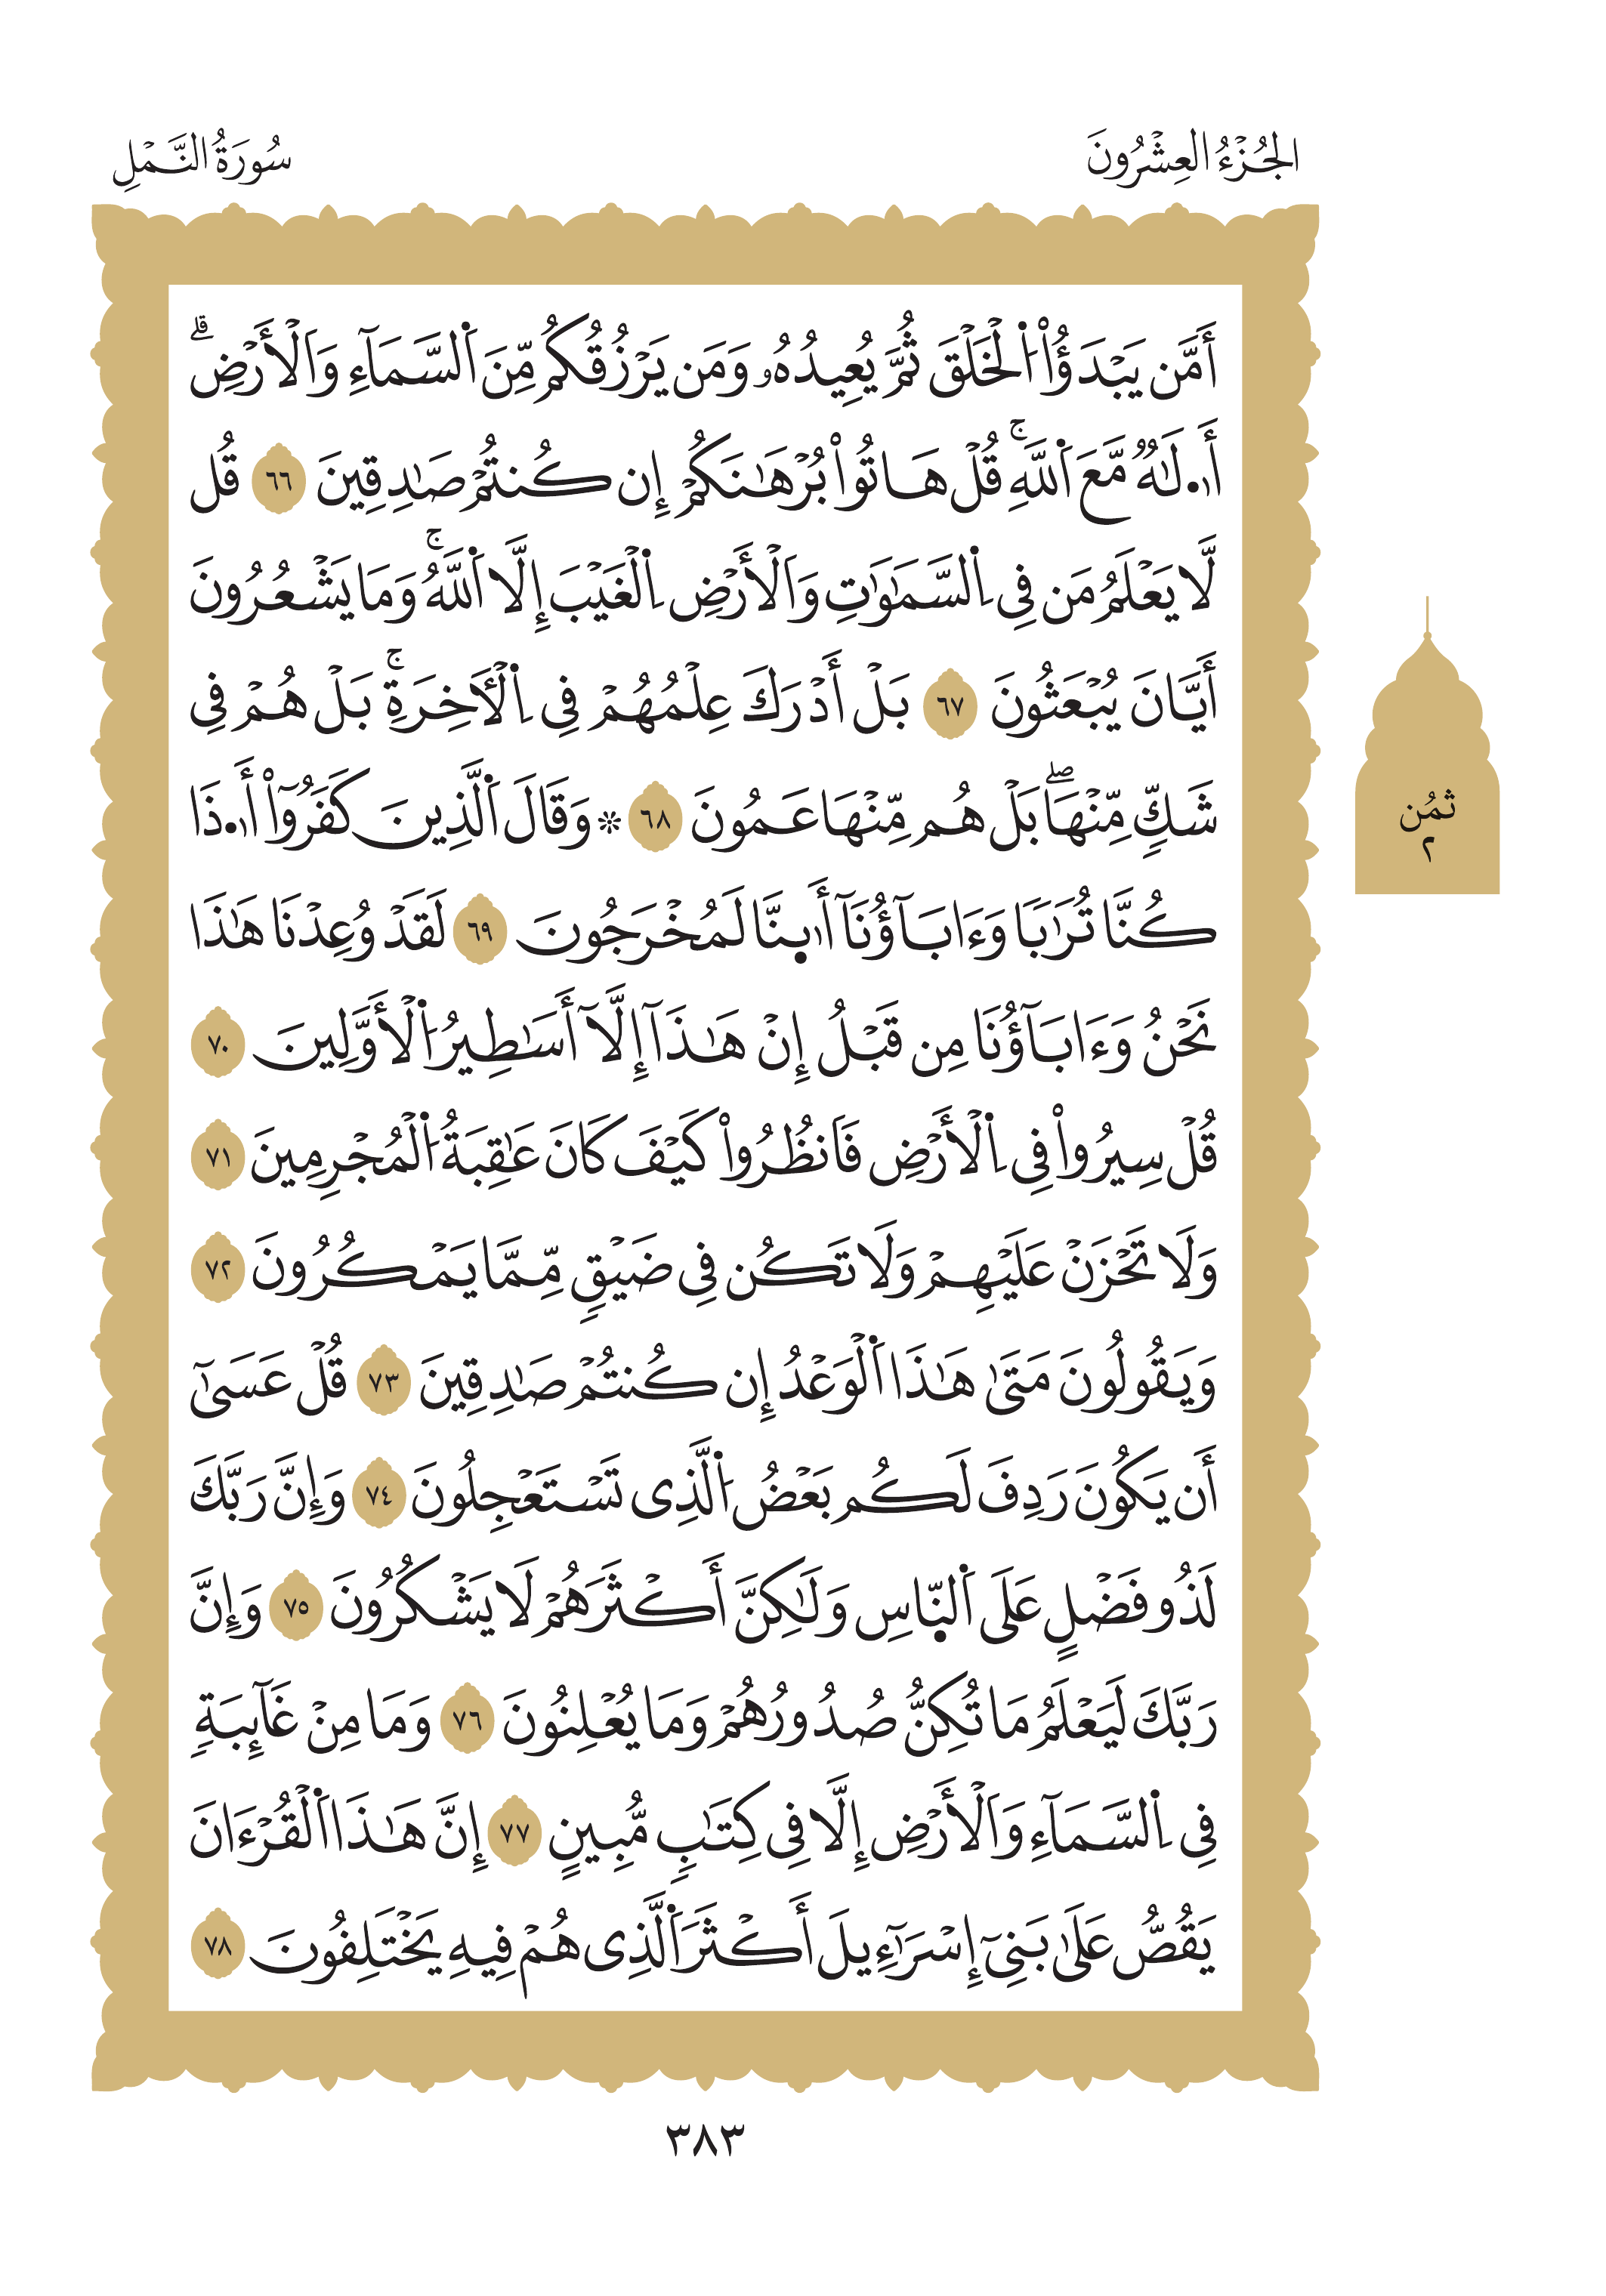 الجُزْءُ العِشْرُونَ
سُورَةُ النَّمْلِ
أَمَّن يَبْدَؤُاْ اُ۬لْخَلْقَ ثُمَّ يُعِيدُهُۥ وَمَن يَرْزُقُكُم مِّنَ اَ۬لسَّمَآءِ وَالْأَرْضِۗ
أَ.لَٰهٌ مَّعَ اَ۬للَّهِۚ قُلْ هَاتُواْ بُرْهَٰنَكُمْ إِن كُنتُمْ صَٰدِقِينَ ٦٦ قُل
لَّا يَعْلَمُ مَن فِى اِ۬لسَّمَٰوَٰتِ وَالْأَرْضِ اِ۬لْغَيْبَ إِلَّا اَ۬للَّهُۚ وَمَا يَشْعُرُونَ
أَيَّانَ يُبْعَثُونَ ٦٧ بَلْ أَدْرَكَ عِلْمُهُمْ فِى اِ۬لْأٓخِرَةِۚ بَلْ هُمْ فِى
شَكٍّ مِّنْهَاۖ بَلْ هُم مِّنْهَا عَمُونَ ٦٨ ۞ وَقَالَ اَ۬لَّذِينَ كَفَرُوٓاْ أَ.ذَا
كُنَّا تُرَٰبًا وَءَابَآؤُنَآ أَىِٕنَّا لَمُخْرَجُونَ ٦٩ لَقَدْ وُعِدْنَا هَٰذَا
نَحْنُ وَءَابَآؤُنَا مِن قَبْلُ إِنْ هَٰذَآ إِلَّآ أَسَٰطِيرُ اُ۬لْأَوَّلِينَ ٧٠
قُلْ سِيرُواْ فِى اِ۬لْأَرْضِ فَانظُرُواْ كَيْفَ كَانَ عَٰقِبَةُ اُ۬لْمُجْرِمِينَ ٧١
وَلَا تَحْزَنْ عَلَيْهِمْ وَلَا تَكُن فِى ضَيْقٍ مِّمَّا يَمْكُرُونَ ٧٢
وَيَقُولُونَ مَتَىٰ هَٰذَا اَ۬لْوَعْدُ إِن كُنتُمْ صَٰدِقِينَ ٧٣ قُلْ عَسَىٰٓ
أَن يَكُونَ رَدِفَ لَكُم بَعْضُ اُ۬لَّذِى تَسْتَعْجِلُونَ ٧٤ وَإِنَّ رَبَّكَ
لَذُو فَضْلٍ عَلَى اَ۬لنَّاسِ وَلَٰكِنَّ أَكْثَرَهُمْ لَا يَشْكُرُونَ ٧٥ وَإِنَّ
رَبَّكَ لَيَعْلَمُ مَا تُكِنُّ صُدُورُهُمْ وَمَا يُعْلِنُونَ ٧٦ وَمَا مِنْ غَآئِبَةٍ
فِى اِ۬لسَّمَآءِ وَالْأَرْضِ إِلَّا فِى كِتَٰبٍ مُّبِينٍ ٧٧ إِنَّ هَٰذَا اَ۬لْقُرْءَانَ
يَقُصُّ عَلَىٰ بَنِىٓ إِسْرَٰٓءِيلَ أَكْثَرَ اَ۬لَّذِى هُمْ فِيهِ يَخْتَلِفُونَ ٧٨
ثُمُن
٢
٣٨٣